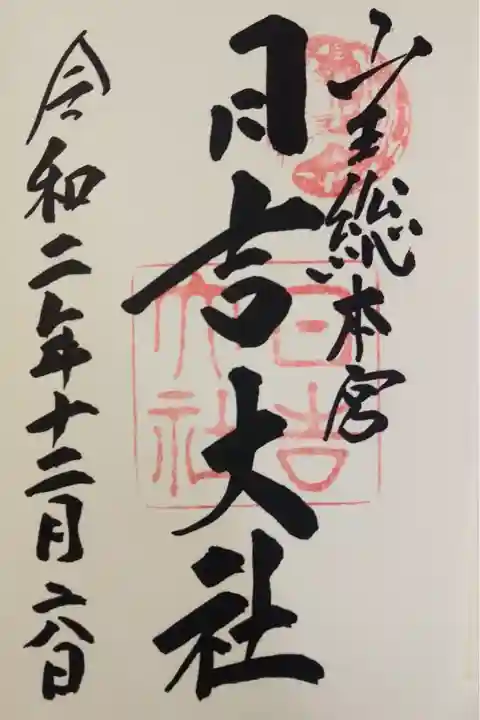 山王総本宮
日吉大社
日吉大社
令和二年十二月二八日